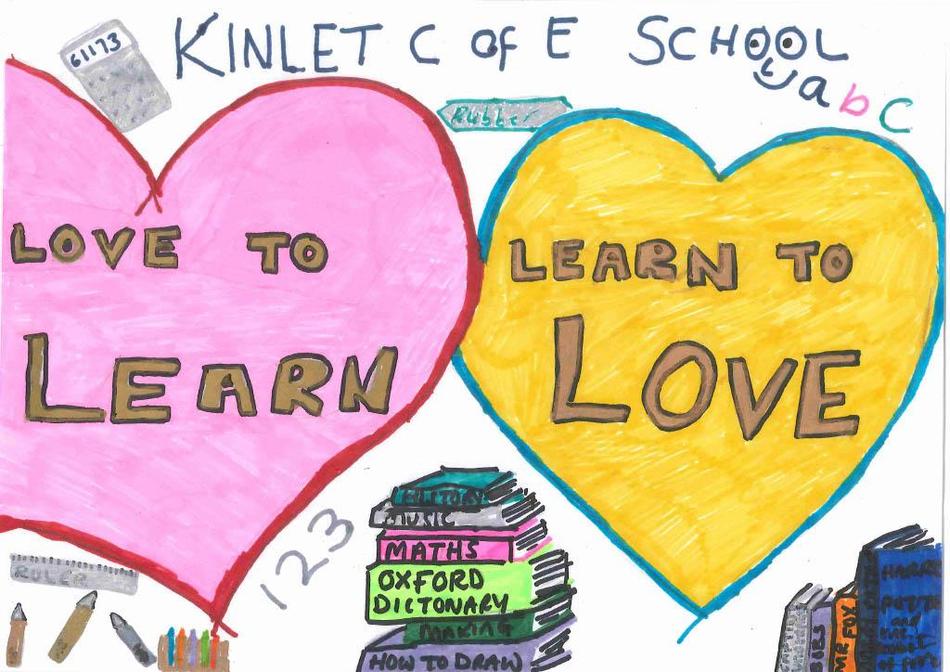 KINLET C of E SCHOOL
a b c
61173
Rubber
LOVE TO
LEARN
LEARN TO
LOVE
123
RULER
HISTORY
MUSIC
MATHS
OXFORD
DICTONARY
MAKING
HOW TO DRAW
MR FOX
HARRY
and